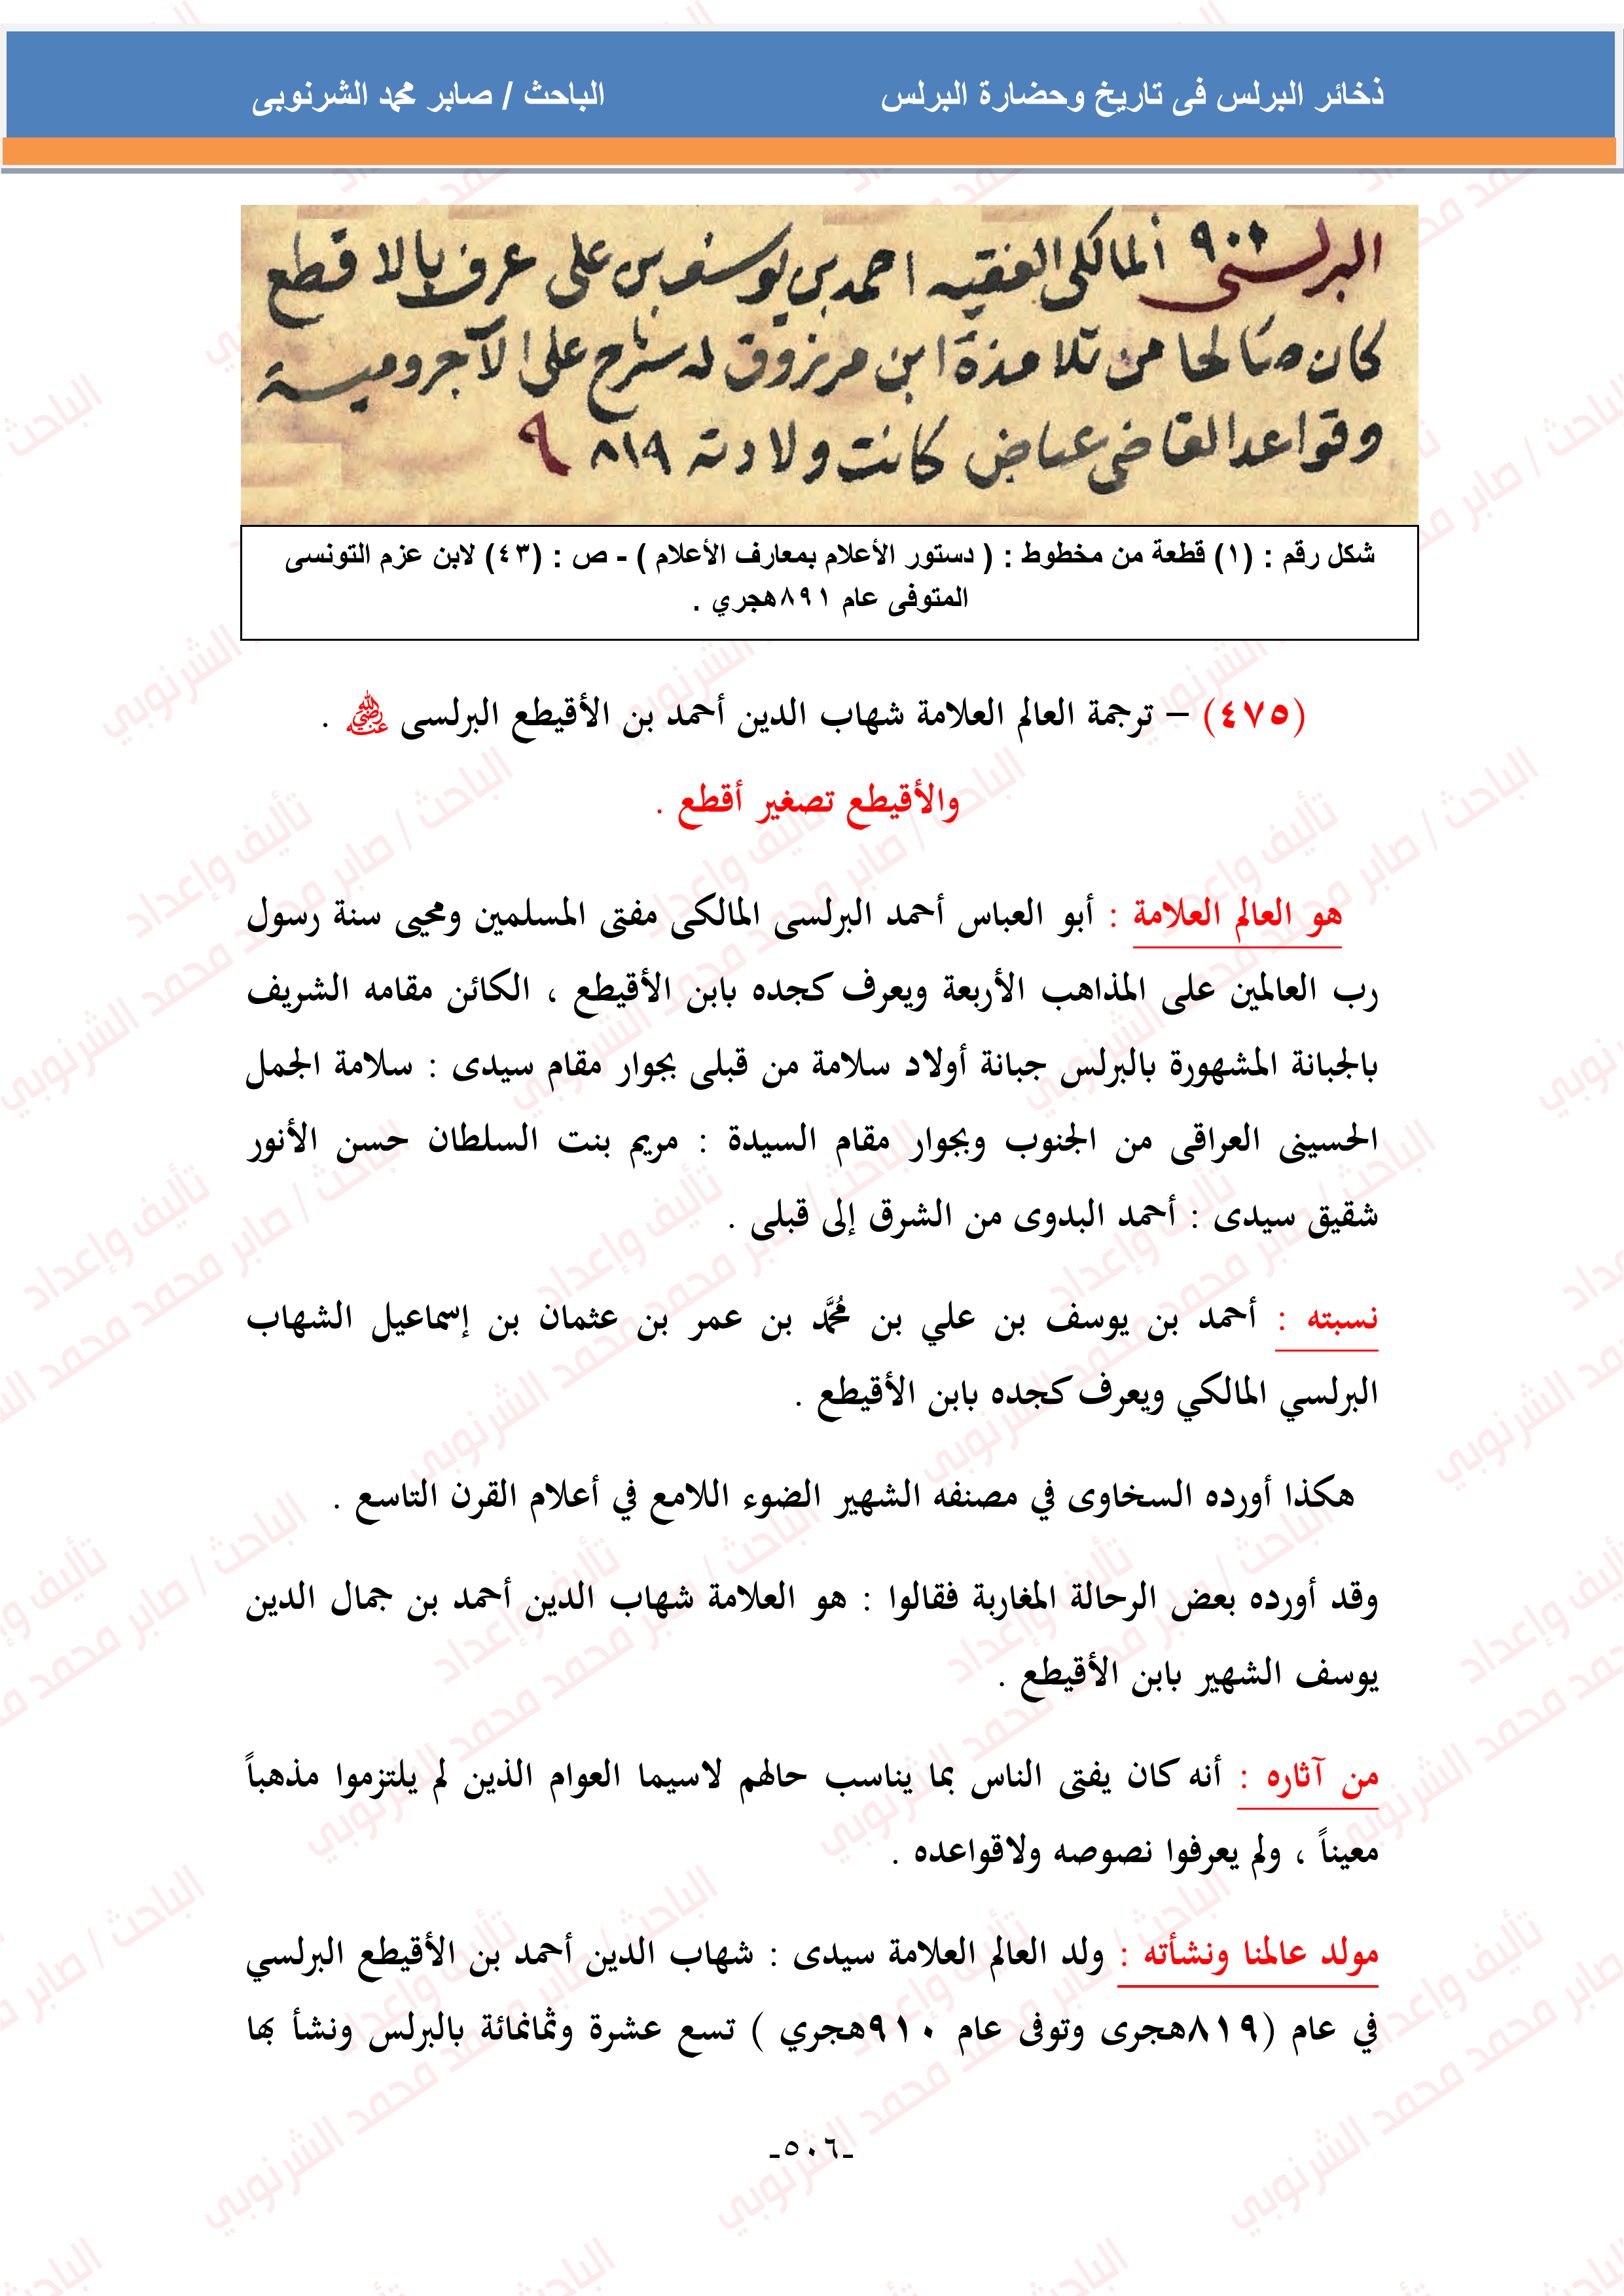 ذخائر البرلس فى تاريخ وحضارة البرلس الباحث / صابر محمد الشرنوبى
البرلسى ٩٠٠ المالكى الفقيه احمد بن يوسف بن على عرف بالاقطع
كان صالحا من تلامذة ابن مرزوق له شرح على الآجرومية
وقواعد القاضى عياض كانت ولادته ٨١٩
شكل رقم : (١) قطعة من مخطوط : ( دستور الأعلام بمعارف الأعلام ) - ص : (٤٣) لابن عزم التونسى
المتوفى عام ٨٩١هجري .
(٤٧٥) – ترجمة العالم العلامة شهاب الدين أحمد بن الأقيطع البرلسى رضي الله عنه .
والأقيطع تصغير أقطع .
هو العالم العلامة : أبو العباس أحمد البرلسى المالكى مفتى المسلمين ومحيى سنة رسول
رب العالمين على المذاهب الأربعة ويعرف كجده بابن الأقيطع ، الكائن مقامه الشريف
بالجبانة المشهورة بالبرلس جبانة أولاد سلامة من قبلى بجوار مقام سيدى : سلامة الجمل
الحسينى العراقى من الجنوب وبجوار مقام السيدة : مريم بنت السلطان حسن الأنور
شقيق سيدى : أحمد البدوى من الشرق إلى قبلى .
نسبته : أحمد بن يوسف بن علي بن مُحَمَّد بن عمر بن عثمان بن إسماعيل الشهاب
البرلسي المالكي ويعرف كجده بابن الأقيطع .
هكذا أورده السخاوى في مصنفه الشهير الضوء اللامع في أعلام القرن التاسع .
وقد أورده بعض الرحالة المغاربة فقالوا : هو العلامة شهاب الدين أحمد بن جمال الدين
يوسف الشهير بابن الأقيطع .
من آثاره : أنه كان يفتى الناس بما يناسب حالهم لاسيما العوام الذين لم يلتزموا مذهباً
معيناً ، ولم يعرفوا نصوصه ولاقواعده .
مولد عالمنا ونشأته : ولد العالم العلامة سيدى : شهاب الدين أحمد بن الأقيطع البرلسي
في عام (٨١٩هجرى وتوفى عام ٩١٠هجري ) تسع عشرة وثمانمائة بالبرلس ونشأ بها
-٥٠٦-
تأليف وإعداد
الباحث / صابر محمد محمد الشرنوبي